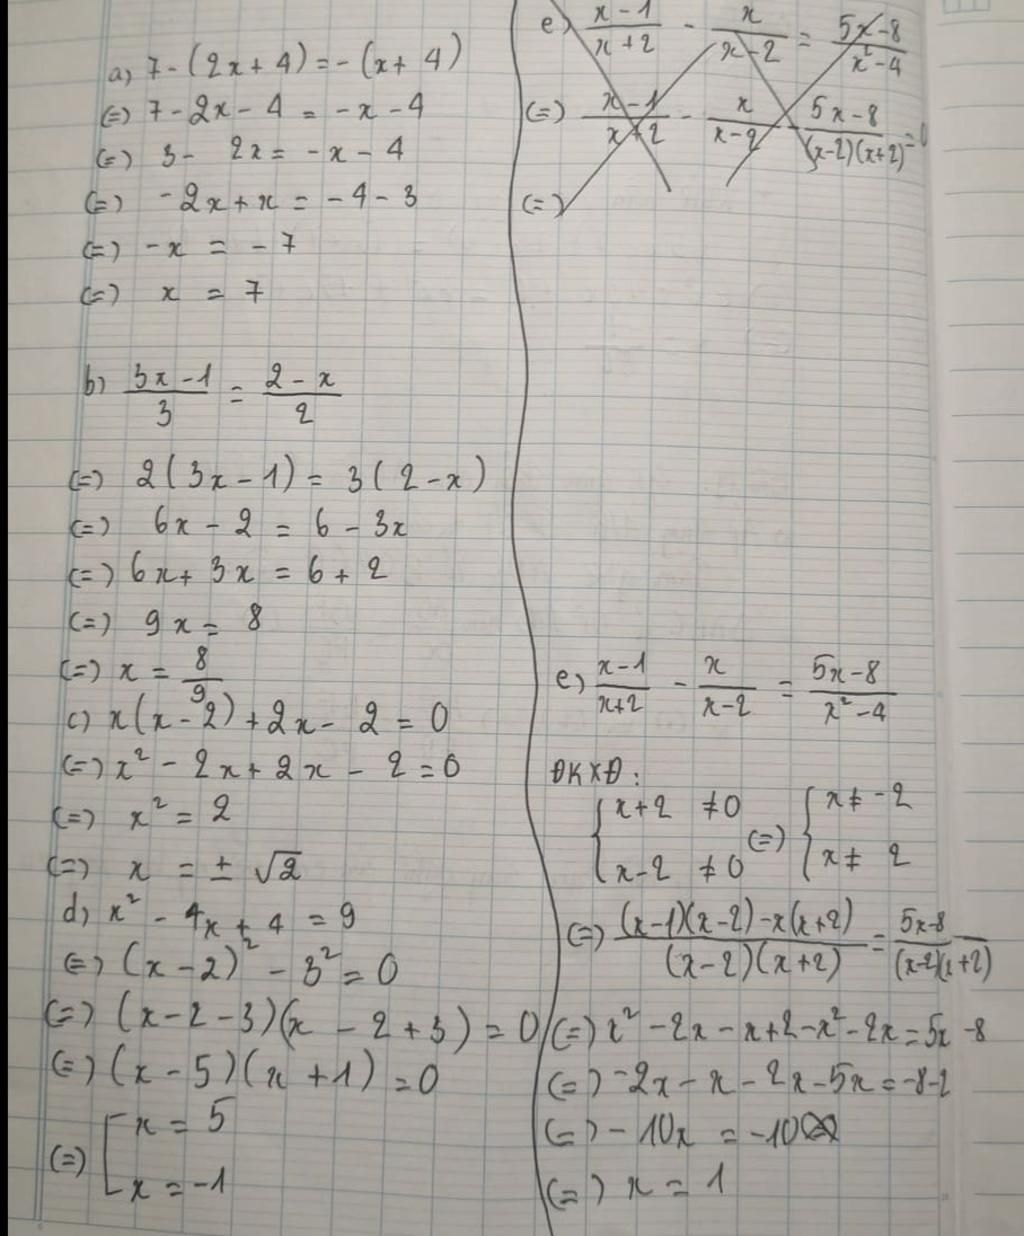 a) 7 - (2x + 4) = - (x + 4)
(=) 7 - 2x - 4 = -x - 4
(=) 3 - 2x = -x - 4
(=) -2x + x = -4 - 3
(=) -x = -7
(=) x = 7
b) \frac{3x - 1}{3} = \frac{2 - x}{2}
(=) 2(3x - 1) = 3(2 - x)
(=) 6x - 2 = 6 - 3x
(=) 6x + 3x = 6 + 2
(=) 9x = 8
(=) x = \frac{8}{9}
c) x(x - 2) + 2x - 2 = 0
(=) x² - 2x + 2x - 2 = 0
(=) x² = 2
(=) x = ± √2
d) x² - 4x + 4 = 9
(=) (x - 2)² - 3² = 0
(=) (x - 2 - 3)(x - 2 + 3) = 0
(=) (x - 5)(x + 1) = 0
(=) [ x = 5
x = -1
e) \frac{x - 1}{x + 2} - \frac{x}{x - 2} = \frac{5x - 8}{x² - 4}
(=) \frac{x - 1}{x + 2} - \frac{x}{x - 2} - \frac{5x - 8}{(x - 2)(x + 2)} = 0
(=)
e) \frac{x - 1}{x + 2} - \frac{x}{x - 2} = \frac{5x - 8}{x² - 4}
ĐKXĐ:
{ x + 2 ≠ 0 (=) { x ≠ -2
x - 2 ≠ 0 x ≠ 2
(=) \frac{(x - 1)(x - 2) - x(x + 2)}{(x - 2)(x + 2)} = \frac{5x - 8}{(x - 2)(x + 2)}
(=) x² - 2x - x + 2 - x² - 2x = 5x - 8
(=) -2x - x - 2x - 5x = -8 - 2
(=) -10x = -10
(=) x = 1